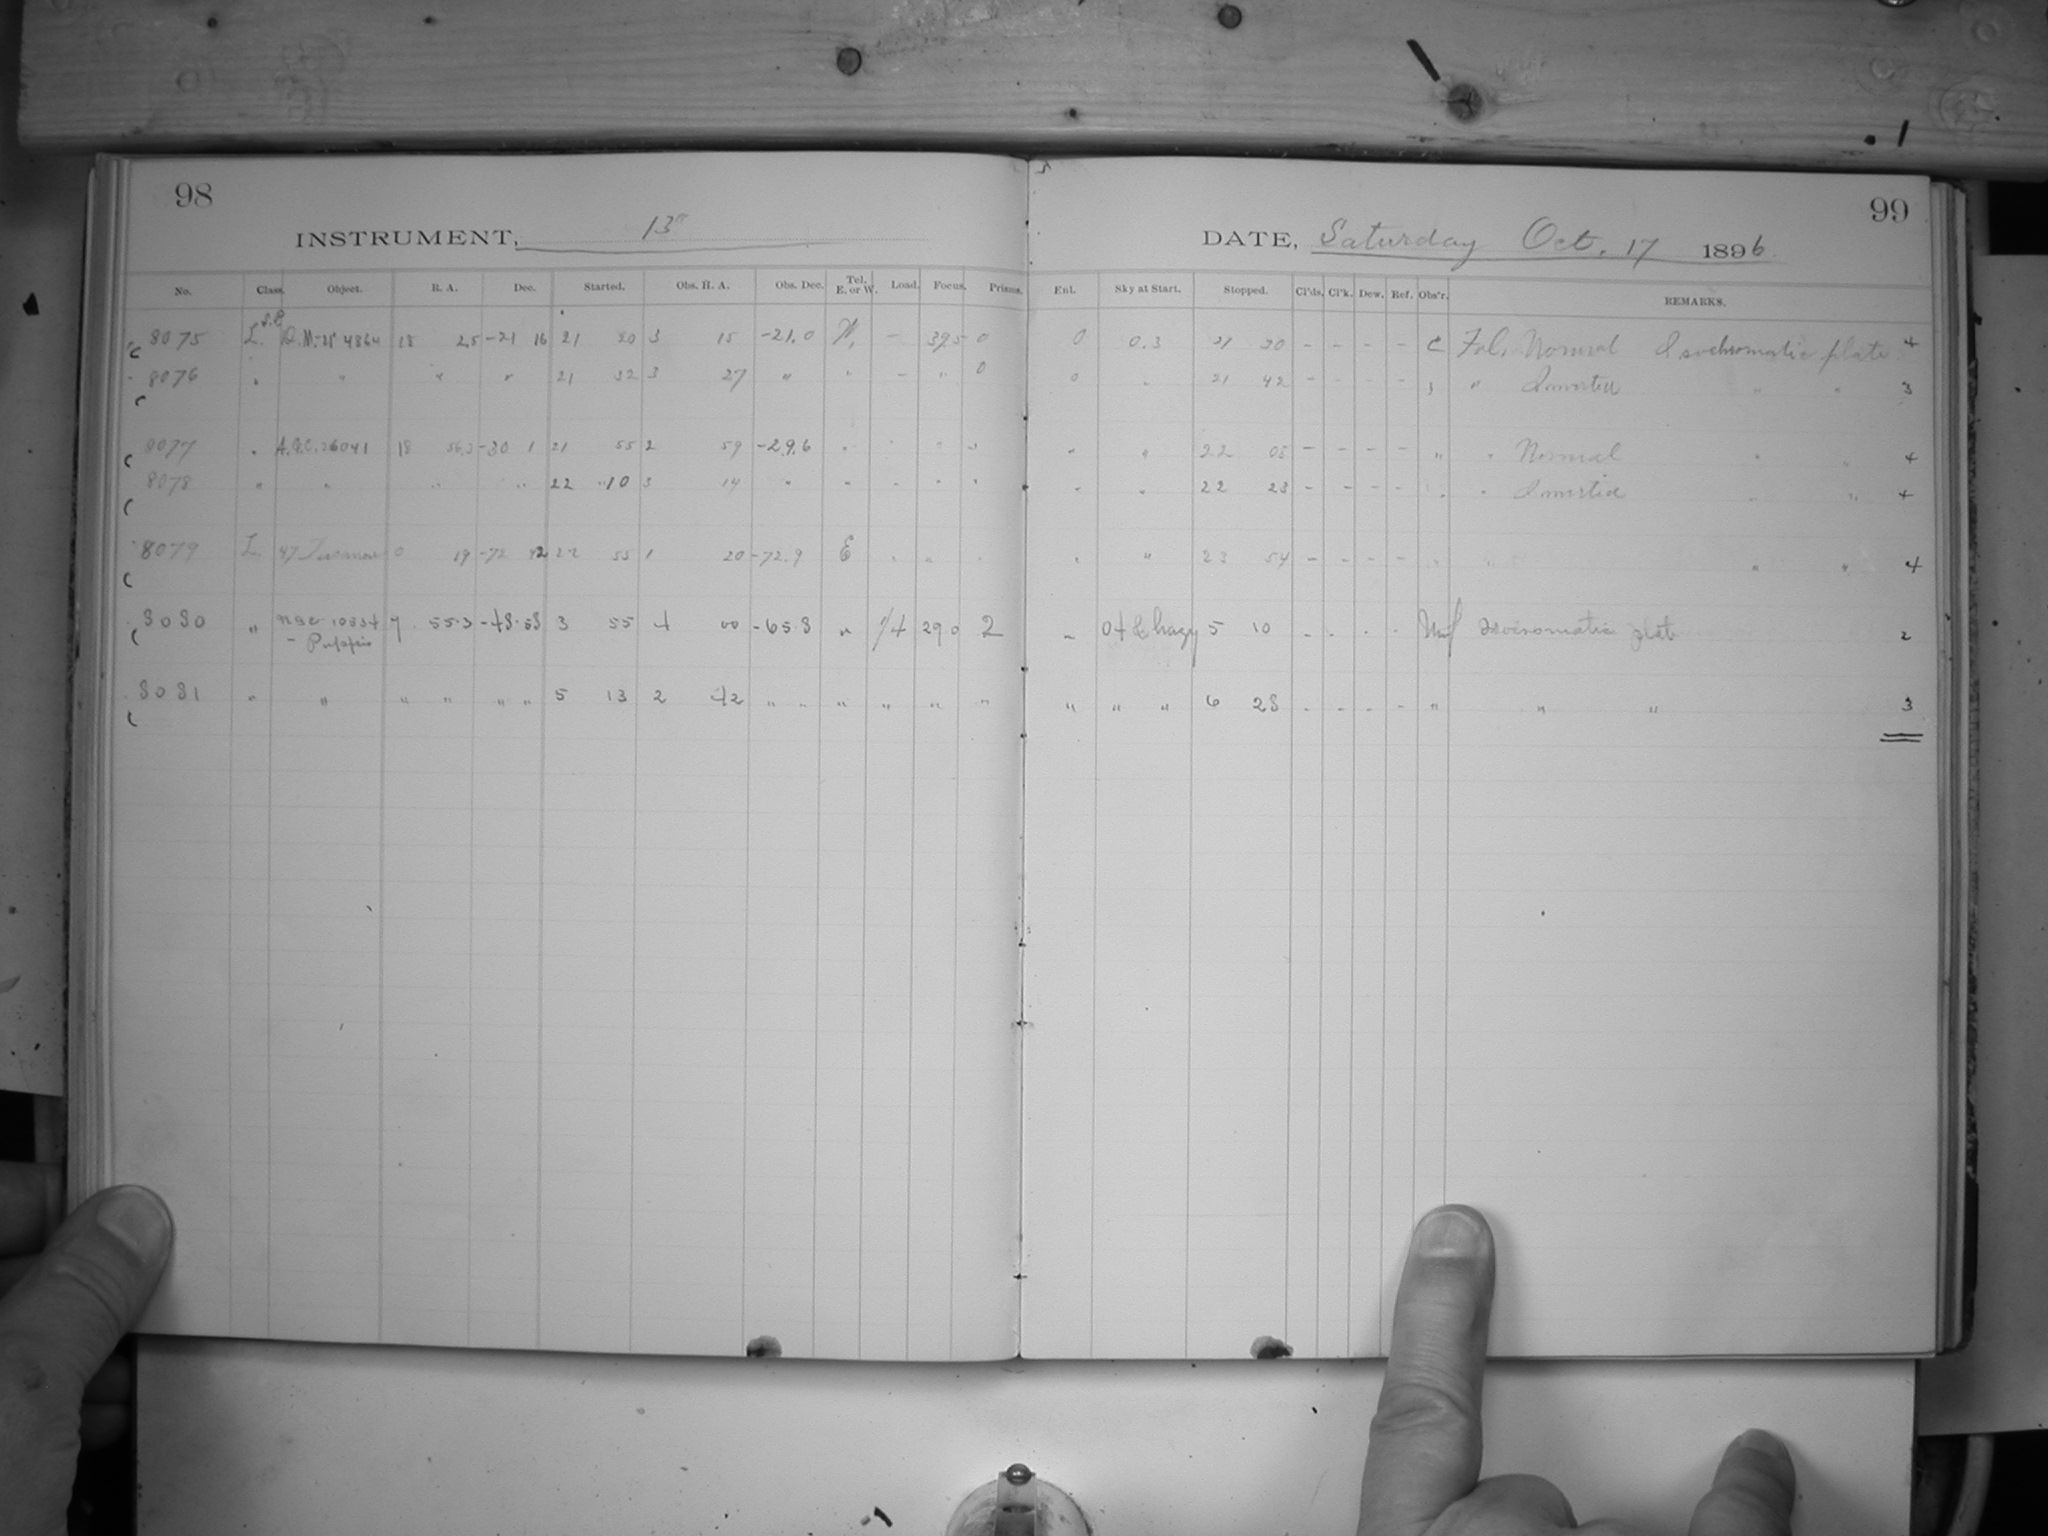 98
INSTRUMENT, 13"
No. Class. Object. R. A. Dec. Started. Obs. R. A. Obs. Dec. Tel. E. or W. Load. Focus. Prisms.
8075 L. S.P. 18 25 -21 16 21 20 3 15 -21.0 W. - 39.5 0
8076 " " " " 21 32 3 27 " " - " 0
8077 " A.G.C. 26041 18 56.3 -30 1 21 55 2 59 -29.6 " " " "
8078 " " " " 22 10 3 14 " " " " "
8079 L 47 0 19 -72 22 55 1 20 -72.9 E " " "
8080 " 7 55.3 -48.58 3 55 4 00 -65.8 " 1/4 29.0 2
- Puppis
8081 " " " " " " 5 13 2 42 " " " " " "
99
DATE, Saturday Oct. 17 1896
Ent. Sky at Start. Stopped. Cl'ds. Cl'k. Dew. Ref. Obs'r. REMARKS.
0 0.3 21 30 - - - - C Normal Isochromatic plate 4
0 " 21 42 - - - - " " Inverted " " 3
" " 22 05 - - - - " " Normal " " 4
" " 22 23 - - - - " " Inverted " " 4
" " 23 54 - - - - " " " " 4
- hazy 5 10 - - - - Isochromatic plate 2
" " " 6 28 - - - - " " " 3